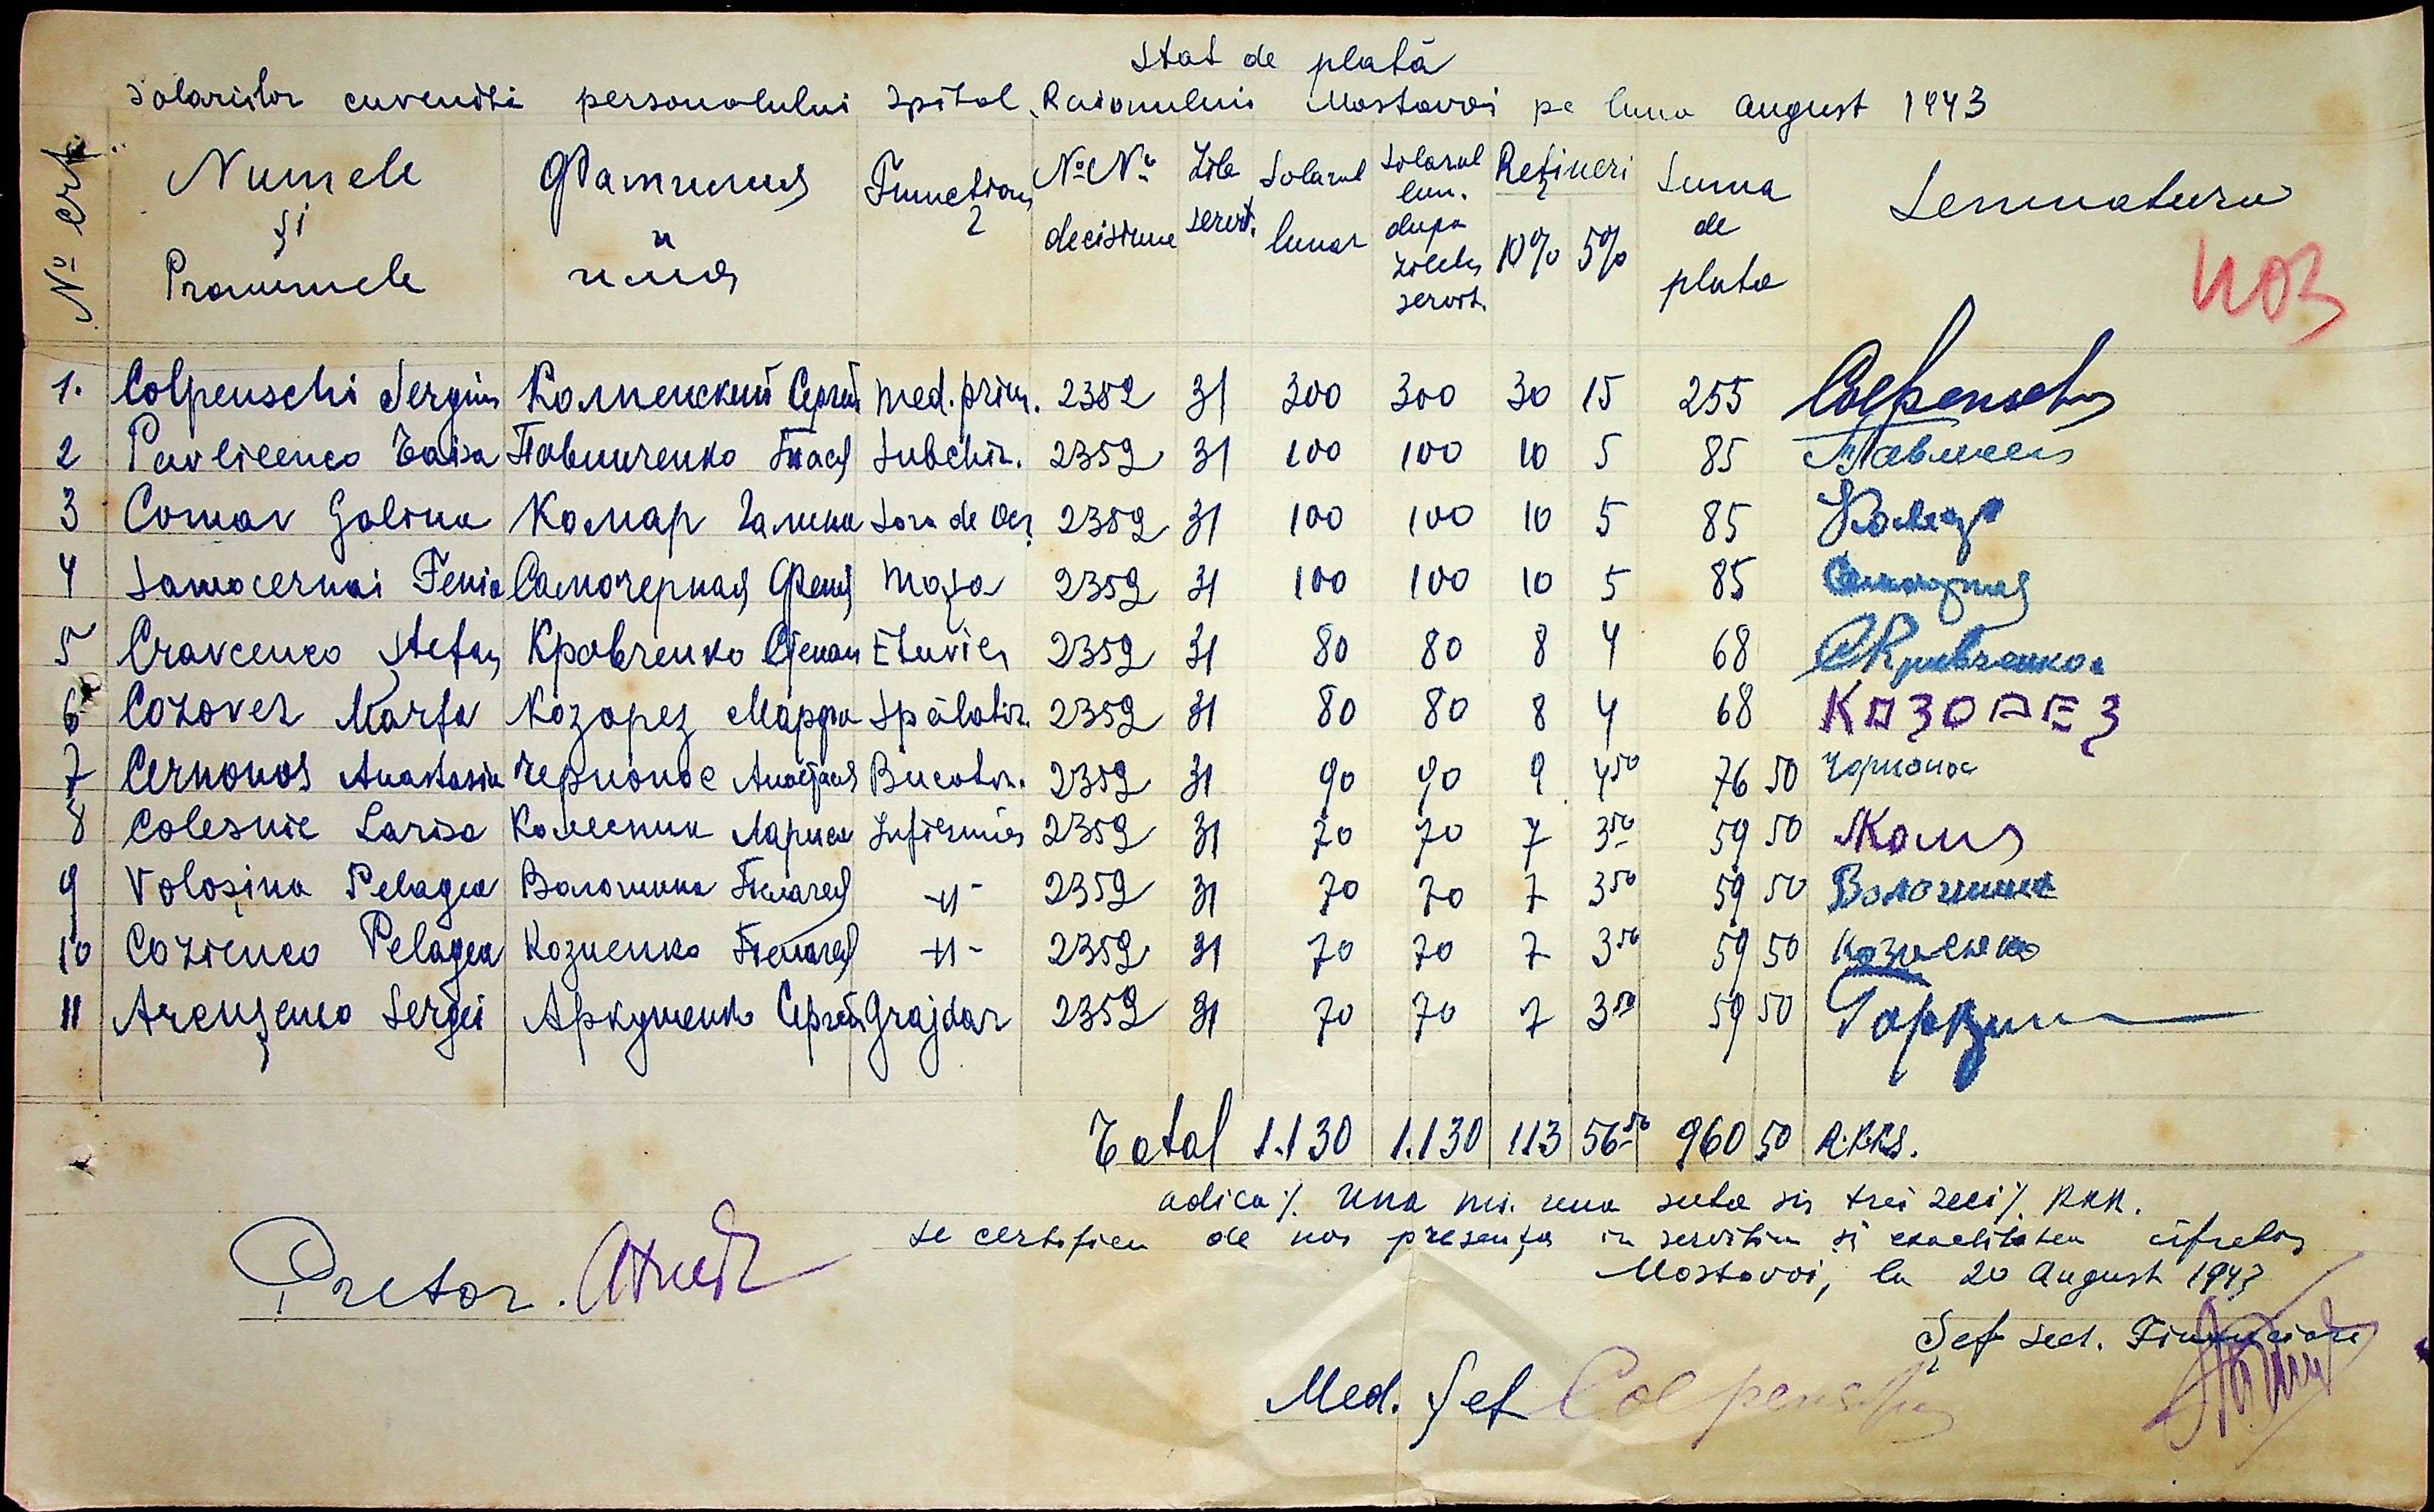 Stat de plată
Salariilor cuvenite personalului Spital. Raionului Mostovoi pe luna August 1943
Nº crt.
Numele și Pronumele
Фамилия и имя
Function
Nº Nº decisiune
Zile servit.
Solarul lunar
Solarul lun. dupa zilele servit.
Rețineri 10% 5%
Suma de plata
Semnatura
1. Colpenschi Sergiu Колпенский Сергей med. prim. 2352 31 300 300 30 15 255 Colpenschi
2 Pavlicenco Taisa Павличенко Таася Subchir. 2352 31 100 100 10 5 85
3 Comar Galina Комар Галина Sora de Ocr. 2352 31 100 100 10 5 85 Комар
4 Samocernai Fenia Самочерная Феня Moșa 2352 31 100 100 10 5 85
5 Cravcenco Stefan Кровченко Степан Etuvier 2352 31 80 80 8 4 68 Кривченко
6 Cozorez Marfa Козорез Марфа Spălatir. 2352 31 80 80 8 4 68 КОЗОРЕЗ
7 Cernonos Anastasia Чернонос Анастася Bucatar. 2352 31 90 90 9 4 50 76 50 Чорнонос
8 Colesnic Larisa Колесник Лариса Infirmier 2352 31 70 70 7 3 50 59 50
9 Voloșina Pelagea Волошина Пелагея -"- 2352 31 70 70 7 3 50 59 50 Волошина
10 Cozienco Pelagea Козиенко Пелагея -"- 2352 31 70 70 7 3 50 59 50 Козиенко
11 Arcușenco Sergei Аркушенко Сергей Grajdar 2352 31 70 70 7 3 50 59 50
Total 1.130 1.130 113 56 50 960 50 R.KKS.
adica ٪. Una mi. una suta sis trei zeci ٪. RKK.
Se certifica de noi presența in servitiu și exactitatea cifrelor
Mostovoi, la 20 August 1943
Pretor.
Șef sect. Financiare
Med. Șef Colpenschi